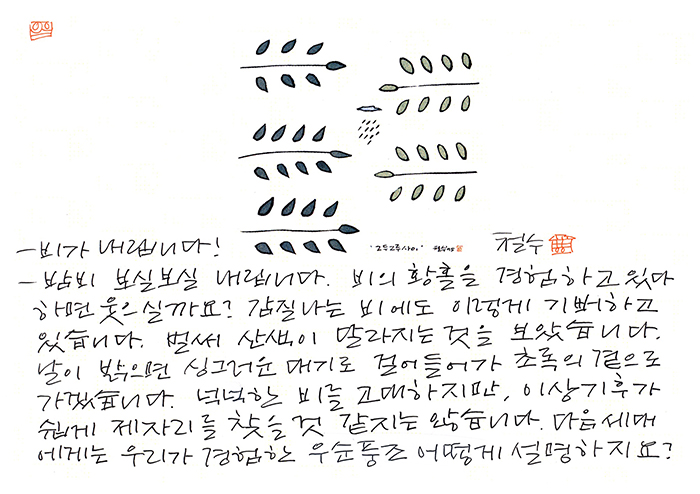 "고두고주 사이"
철수
– 비가 내립니다!
– 밤비 보실보실 내립니다. 비의 황홀을 경험하고 있다
하면 웃으실까요? 감질나는 비에도 이렇게 기뻐하고
있습니다. 벌써 산색이 달라지는 것을 보았습니다.
날이 밝으면 싱그러운 대기로 걸어들어가 초록의 곁으로
가겠습니다. 넉넉한 비를 고대하지만, 이상기후가
쉽게 제자리를 찾을 것 같지는 않습니다. 다음세대
에게는 우리가 경험한 우순풍조 어떻게 설명하지요?